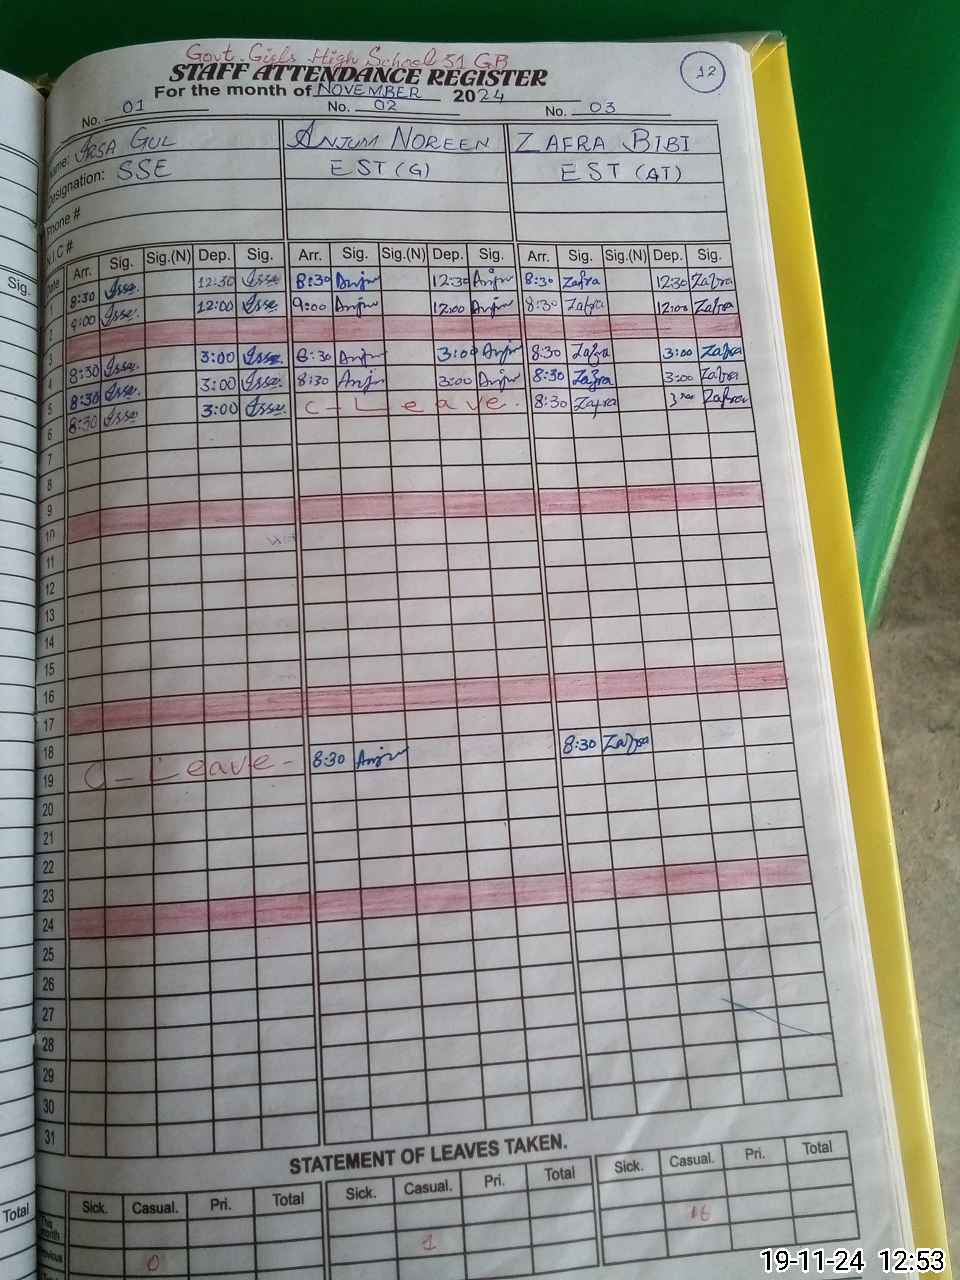 Govt. Girls High School 51 GB
STAFF ATTENDANCE REGISTER
12
For the month of NOVEMBER 2024
No. 01 No. 02 No. 03
Name: IRSA GUL ANJUM NOREEN ZAFRA BIBI
Designation: SSE EST (G) EST (AT)
Phone #
N.I.C #
Date Arr. Sig. Sig.(N) Dep. Sig. Arr. Sig. Sig.(N) Dep. Sig. Arr. Sig. Sig.(N) Dep. Sig.
1 8:30 12:30 8:30 Anjum 12:30 Anjum 8:30 Zafra 12:30 Zafra
2 9:00 12:00 9:00 Anjum 12:00 Anjum 8:30 Zafra 12:00 Zafra
3
4 8:30 3:00 8:30 Anjum 3:00 Anjum 8:30 Zafra 3:00 Zafra
5 8:30 3:00 8:30 Anjum 3:00 Anjum 8:30 Zafra 3:00 Zafra
6 8:30 3:00 C - Leave. 8:30 Zafra 3:00 Zafra
7
8
9
10
11
12
13
14
15
16
17
18
19 C - Leave - 8:30 Anjum 8:30 Zafra
20
21
22
23
24
25
26
27
28
29
30
31
STATEMENT OF LEAVES TAKEN.
Sick. Casual. Pri. Total Sick. Casual. Pri. Total Sick. Casual. Pri. Total
This month 16
0 1
Sig.
Total
19-11-24 12:53